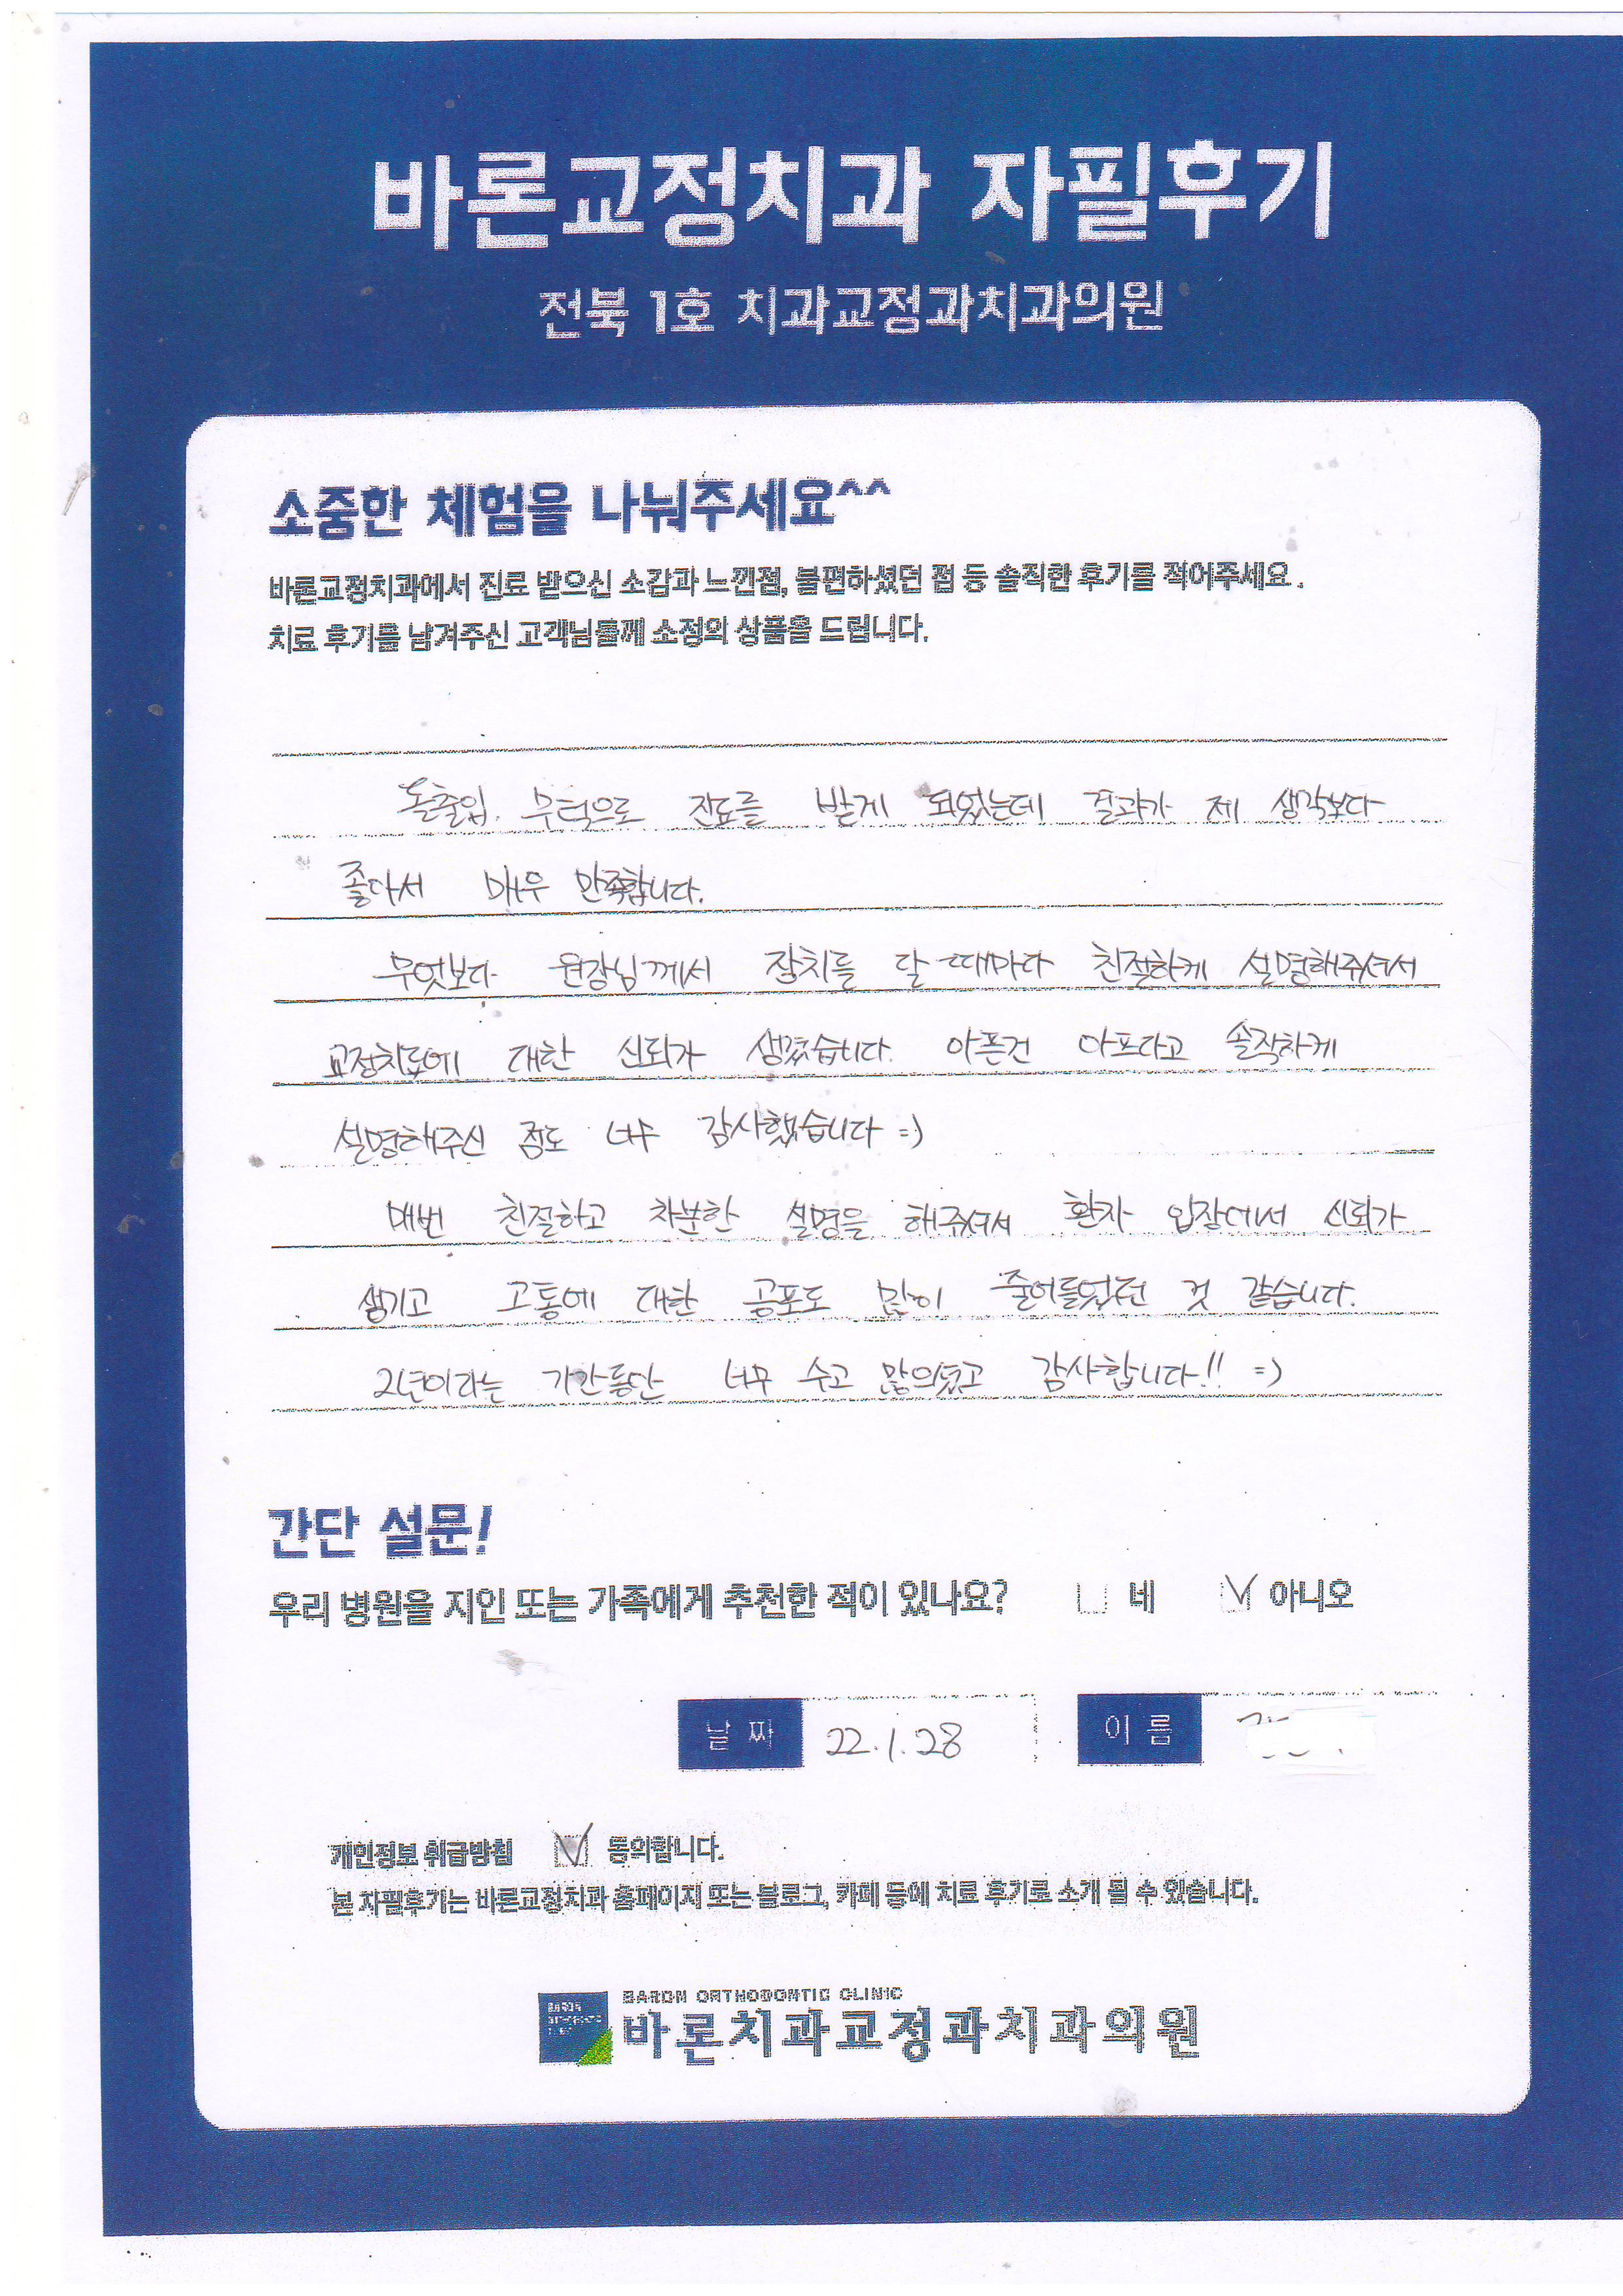 바론교정치과 자필후기
전북 1호 치과교정과치과의원
소중한 체험을 나눠주세요^^
바른교정치과에서 진료 받으신 소감과 느낀점, 불편하셨던 점 등 솔직한 후기를 적어주세요.
치료 후기를 남겨주신 고객님들께 소정의 상품을 드립니다.
돌출입, 무턱으로 진료를 받게 되었는데 결과가 제 생각보다
좋아서 매우 만족합니다.
무엇보다 원장님께서 장치를 달 때마다 친절하게 설명해주셔서
교정치료에 대한 신뢰가 생겼습니다. 아픈건 아프다고 솔직하게
설명해주신 점도 너무 감사했습니다 =)
매번 친절하고 차분한 설명을 해주셔서 환자 입장에서 신뢰가
생기고 고통에 대한 공포도 많이 줄어들었던 것 같습니다.
2년이라는 기간동안 너무 수고 많으셨고 감사합니다!! =)
간단 설문!
우리 병원을 지인 또는 가족에게 추천한 적이 있나요? 네 아니오
날짜 22.1.28 이름
개인정보 취급방침 동의합니다.
본 자필후기는 바론교정치과 홈페이지 또는 블로그, 카페 등에 치료 후기로 소개 될 수 있습니다.
BARON ORTHODONTIC CLINIC
바론치과교정과치과의원